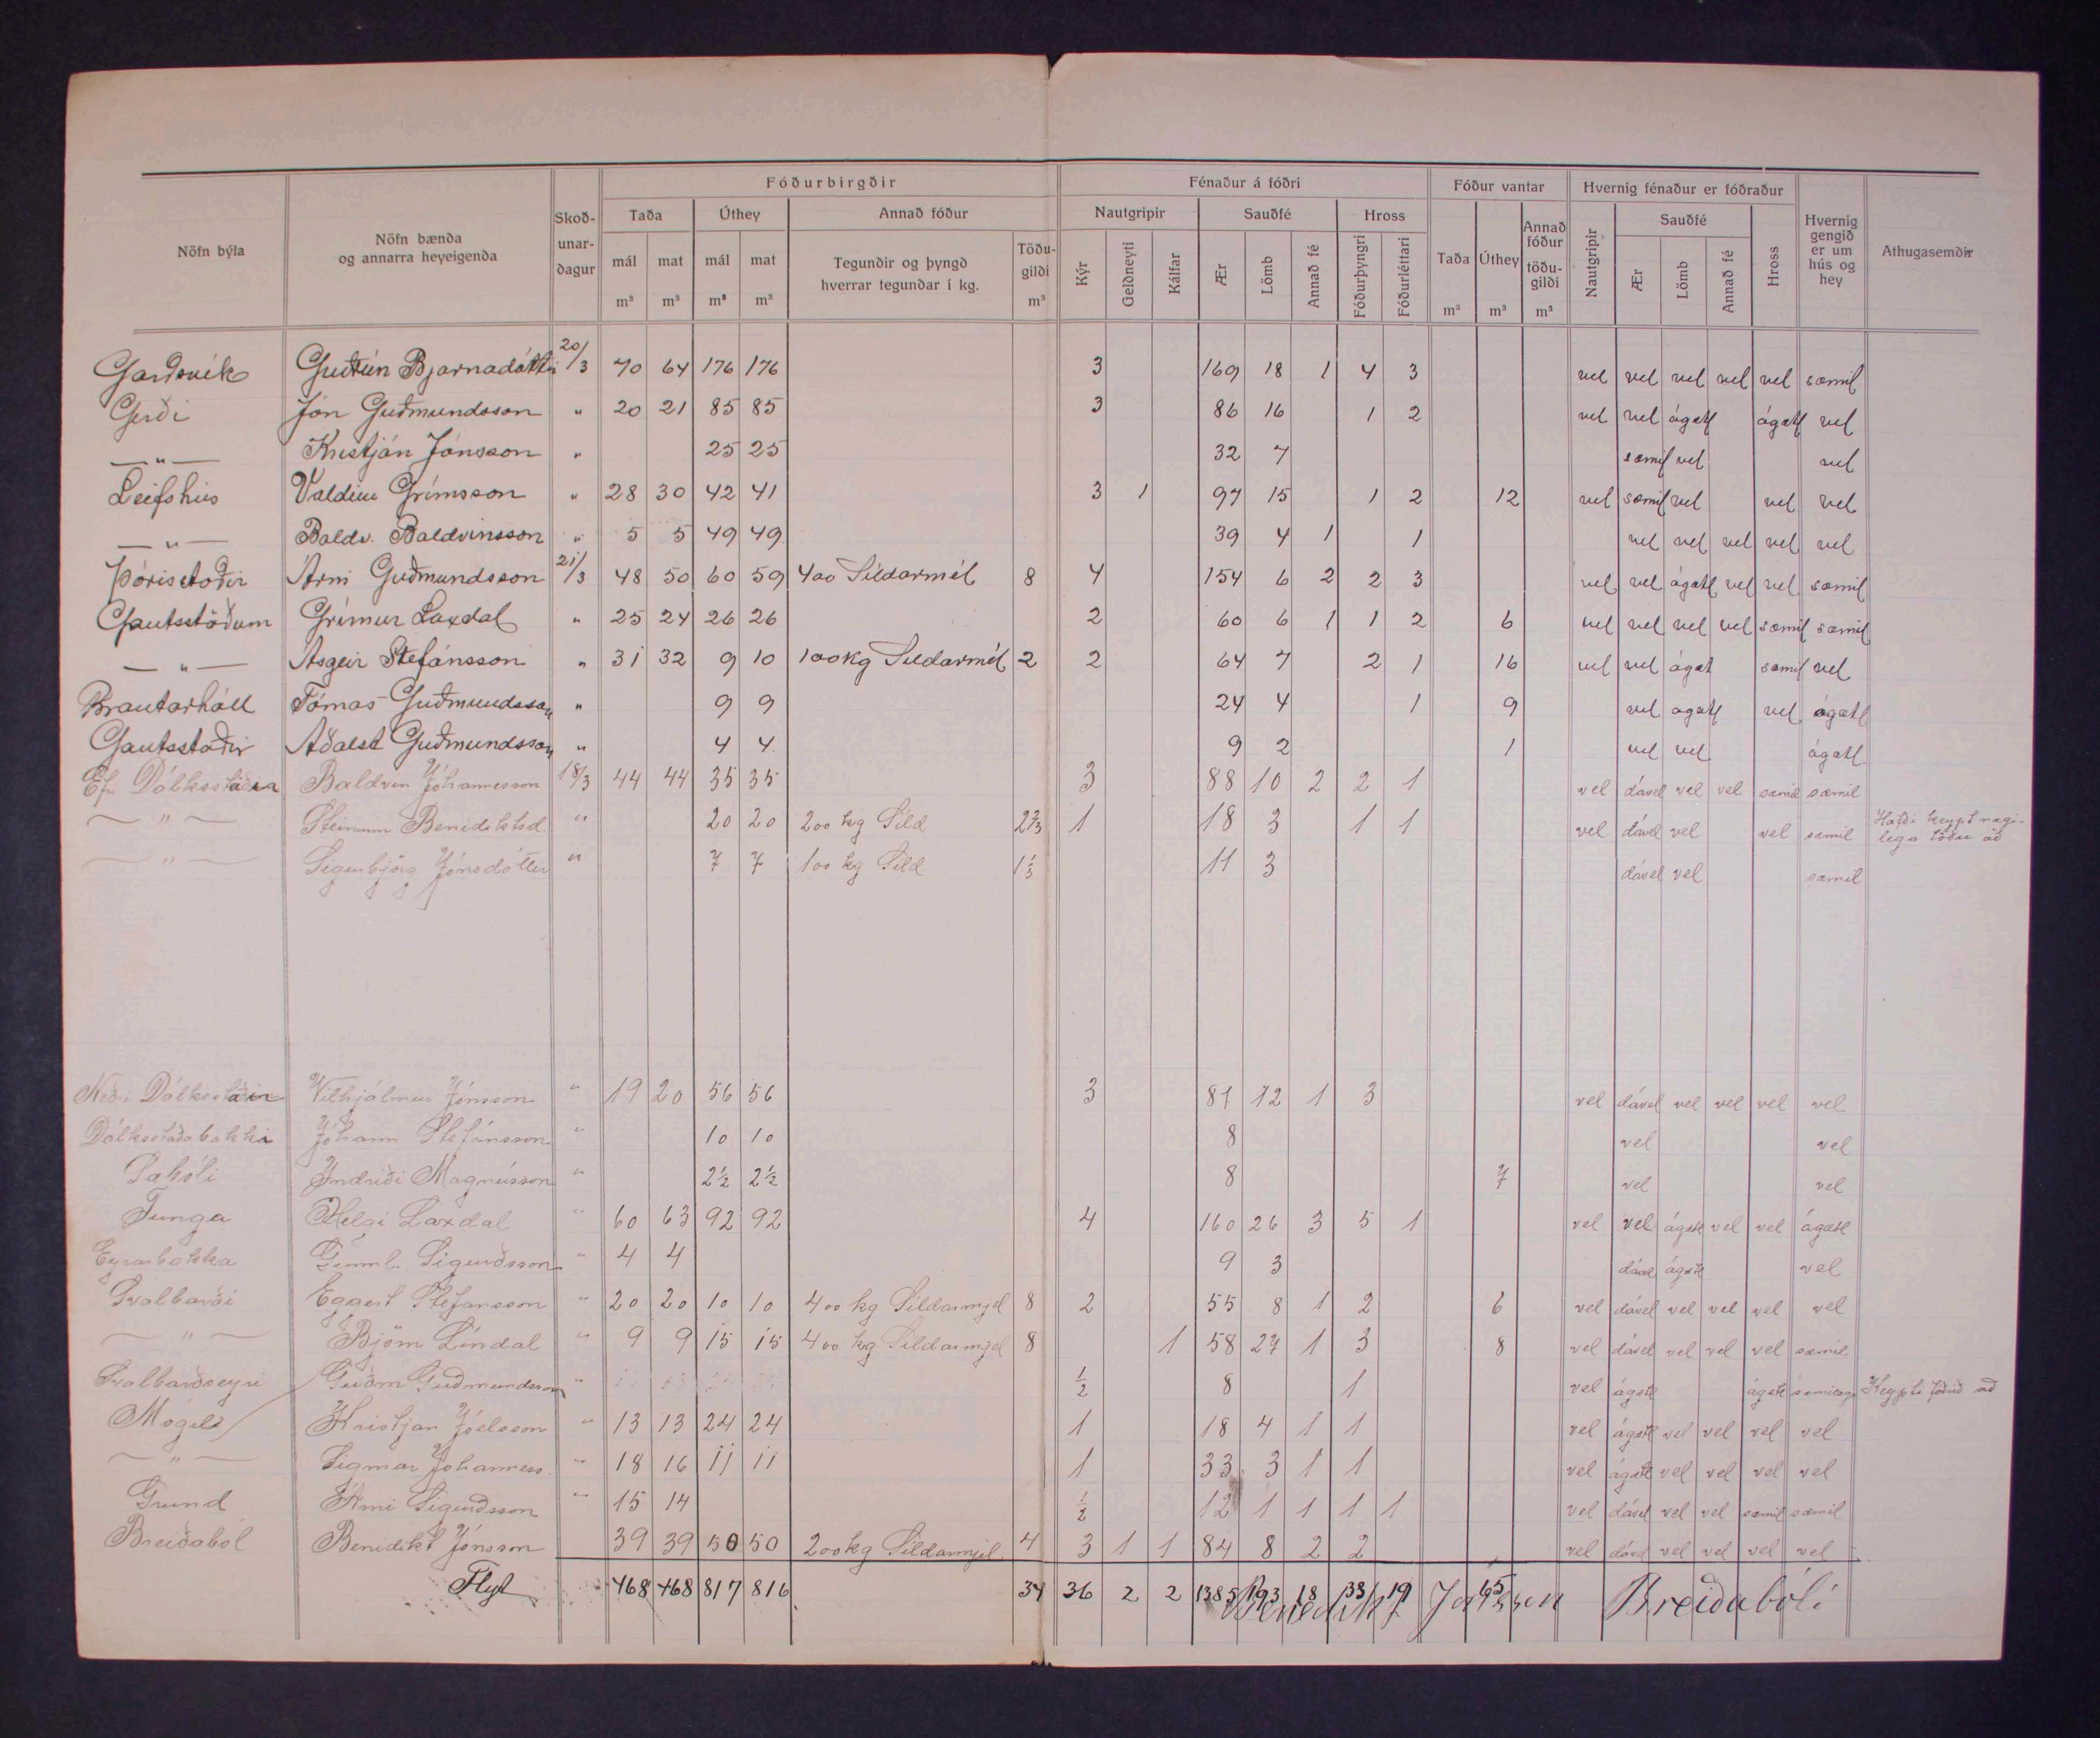 Nöfn býla | Nöfn bænda og annarra heyeigenda | Skoð-unar-dagur | Fóðurbirgðir | Fénaður á fóðri | Fóður vantar | Hvernig fénaður er fóðraður | Hvernig gengið er um hús og hey | Athugasemdir
Taða | Úthey | Annað fóður | Nautgripir | Sauðfé | Hross | Taða | Úthey | Annað fóður töðu-gildi | Nautgripir | Sauðfé | Hross
mál m³ | mat m³ | mál m³ | mat m³ | Tegundir og þyngd hverrar tegundar í kg. | Töðu-gildi m³ | Kýr | Geldneyti | Kálfar | Ær | Lömb | Annað fé | Fóðurþyngri | Fóðurléttari | m³ | m³ | m³ | Ær | Lömb | Annað fé
Garðsvík Guðrún Bjarnadóttir 20/3 70 64 176 176 3 169 18 1 4 3 vel vel vel vel vel sæmil
Gerði Jón Guðmundsson " 20 21 85 85 3 86 16 1 2 vel vel ágætl ágætl vel
—"— Kristján Jónsson " 25 25 32 7 sæmil vel vel
Leifshús Valdim Grímsson " 28 30 42 41 3 1 97 15 1 2 12 vel sæmil vel vel vel
—"— Baldv. Baldvinsson " 5 5 49 49 39 4 1 1 vel vel vel vel vel
Þórisstaðir Árni Guðmundsson 21/3 48 50 60 59 400 Síldarmél 8 4 154 6 2 2 3 vel vel ágætl vel vel sæmil
Gautsstöðum Grímur Laxdal " 25 24 26 26 2 60 6 1 1 2 6 vel vel vel vel sæmil sæmil
—"— Ásgeir Stefánsson " 31 32 9 10 100 kg Síldarmél 2 2 64 7 2 1 16 vel vel ágæt sæmil vel
Brautarhóll Tómas Guðmundsson " 9 9 24 4 1 9 vel ágætl vel ágætl
Gautsstaðir Aðalst Guðmundsson " 4 4 9 2 1 vel vel ágætl
Efri Dálksstaðir Baldvin Jóhannesson 18/3 44 44 35 35 3 88 10 2 2 1 vel dável vel vel sæmil sæmil
—"— Steinunn Benediktsd. " 20 20 200 kg Síld 2 2/3 1 18 3 1 1 vel dável vel vel sæmil Hafði keypt nægi-lega töðu að
—"— Sigurbjörg Jónsdóttir " 7 7 100 kg Síld 1 1/3 11 3 dável vel sæmil
Neðri Dálksstaðir Vilhjálmur Jónsson " 19 20 56 56 3 81 12 1 3 vel dável vel vel vel vel
Dálksstaðabakki Jóhann Stefánsson " 10 10 8 vel vel
Indriði Magnússon " 2½ 2½ 8 7 vel vel
Tunga Helgi Laxdal " 60 63 92 92 4 160 26 3 5 1 vel vel ágætl vel vel ágætl
Eyrarbakka Sigurðsson " 4 4 9 3 dável ágætl vel
Svalbarði Eggert Stefánsson " 20 20 10 10 400 kg Síldarmjel 8 2 55 8 1 2 6 vel dável vel vel vel vel
—"— Björn Líndal " 9 9 15 15 400 kg Síldarmjel 8 1 58 27 1 3 8 vel dável vel vel vel sæmil
Svalbarðseyri Guðm Guðmundsson " ½ 8 1 vel ágætl ágætl sæmileg Keypti fóðrið að
Mógil Kristján Jóelsson " 13 13 24 24 1 18 4 1 1 vel ágætl vel vel vel vel
—"— Sigmar Jóhanness. " 18 16 11 11 1 33 3 1 1 vel ágætl vel vel vel vel
Grund Árni Sigurðsson " 15 14 ½ 12 1 1 1 1 vel dável vel vel sæmil sæmil
Breiðaból Benedikt Jónsson 39 39 50 50 200 kg Síldarmjel 4 3 1 1 84 8 2 2 vel dável vel vel vel vel
Flyt 468 468 817 816 34 36 2 2 1385 193 18 33 19 65
Benedikt Jónsson Breiðabóli